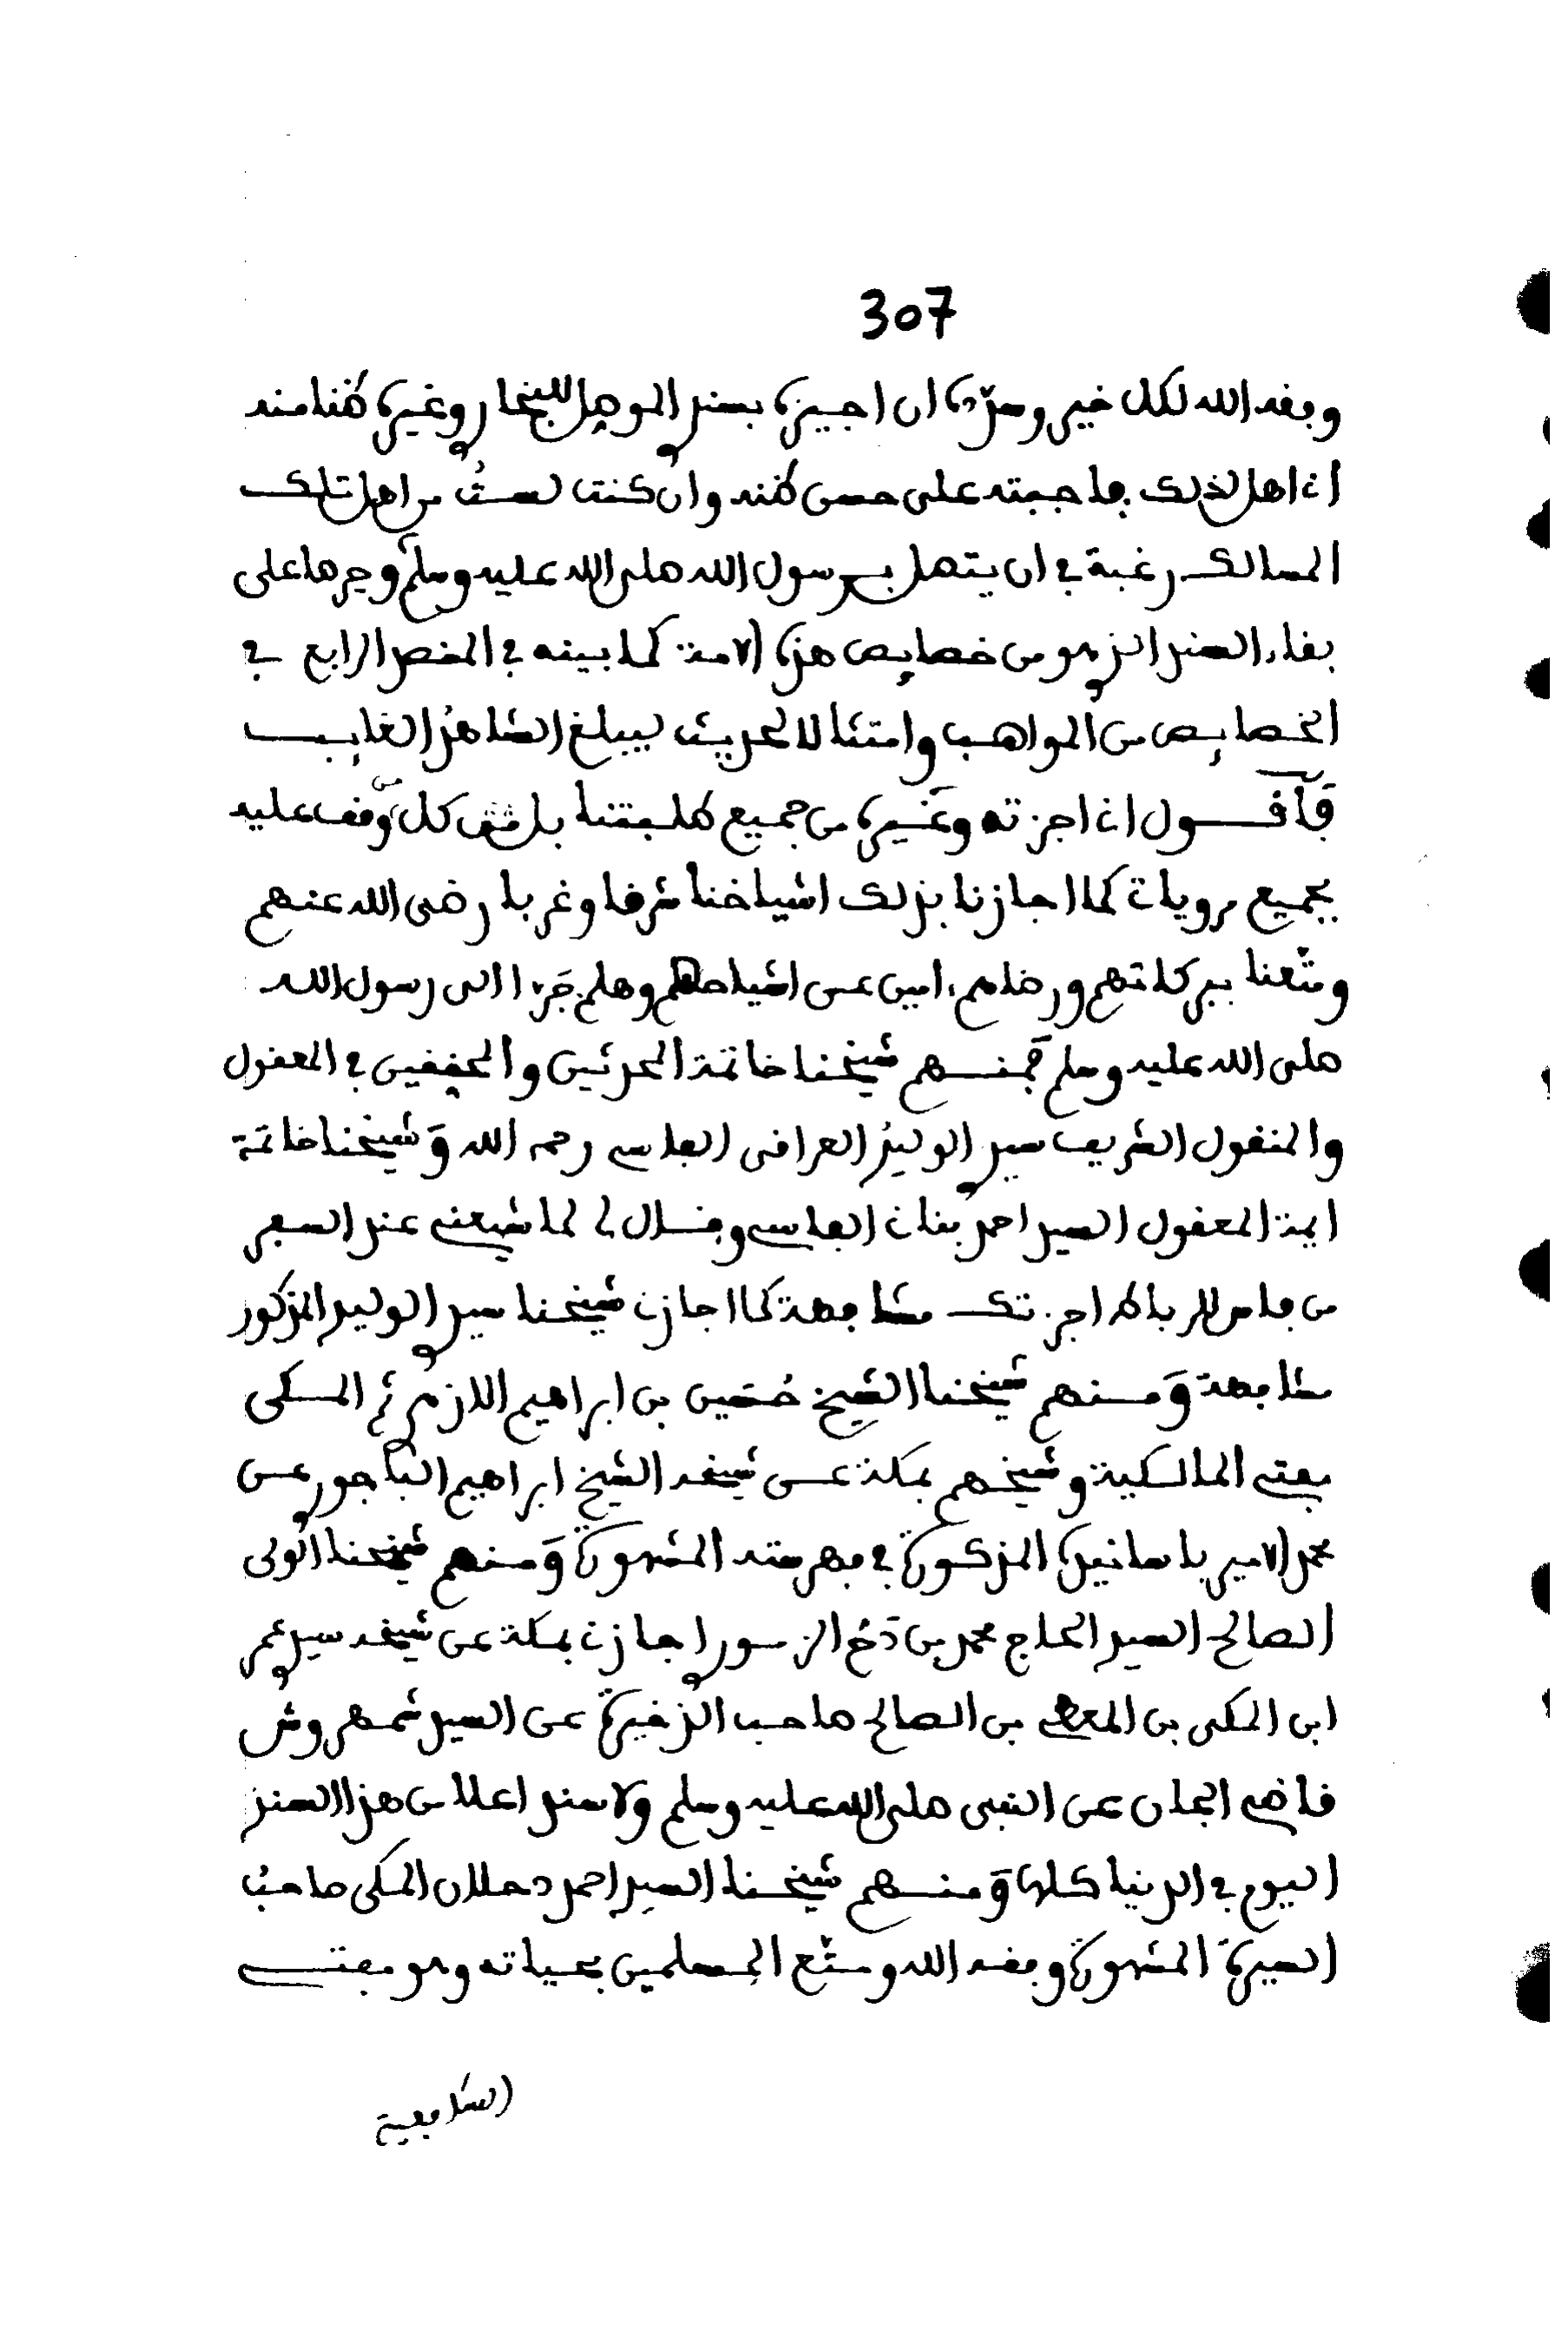 307
وفقه الله لكل خير وسدده ان اجيزه بسندي الموصل للبخاري وغيره ظنا منه
اني اهل لذلك فاجبته على حسن ظنه وان كنت لستُ من اهل تلك
المسالك رغبة في ان يتصل بي برسول الله صلى الله عليه وسلم وحرصا على
بقاء السند الذي هو من خصايص هذه الامة كما بينه في المقصد الرابع في
الخصايص من المواهب وامتثالا لحديث ليبلغ الشاهدُ الغايب
فَأقول اني اجزته وغيره من جميع طلبتنا بل كل من وقف عليه
بجميع مروياتي كما اجازنا بذلك اشياخنا شرقا وغربا رضى الله عنهم
ومتّعنا ببركاتهم ورضاهم ءامين عن اشياخهم وهلم جَرّا الى رسول الله
صلى الله عليه وسلم فمنهم شيخنا خاتمة المحدثين والمحققين في المعقول
والمنقول الشريف سيدي الوليدُ العراقى الفاسي رحمه الله وَشيخنا خاتمة
ايمة المعقول السيد احمد بناني الفاسي وقال لي لما شيعني عند السفر
من فاس للرباط اجزتك مشافهة كما اجازني شيخنا سيدي الوليد المذكور
مشافهة وَمنهم شيخنا الشيخ حُسَين بن ابراهيم الازهري ثم المكى
مفتي المالكية وشيخهم بمكة عن شيخه الشيخ ابراهيم البَاجوري عن
محمد الامير باسانيده المذكورة في فهرسته المشهورة وَمنهم شيخنا الولى
الصالح السيد الحاج محمد بن دَحُ الزموري اجازني بمكة عن شيخه سيدي عمر
ابن المكى بن المعطي بن الصالح صاحب الذخيرة عن السيد شمهروش
قاضي الجان عن النبى صلى الله عليه وسلم وَلا سند اعلا من هذا السند
اليوم في الدنيا كلها وَمنهم شيخنا السيد احمد دحلان المكى صاحبُ
السيرة المشهورة وفقه الله ومتّع المسلمين بحياته وهو مفتي
الشافعية